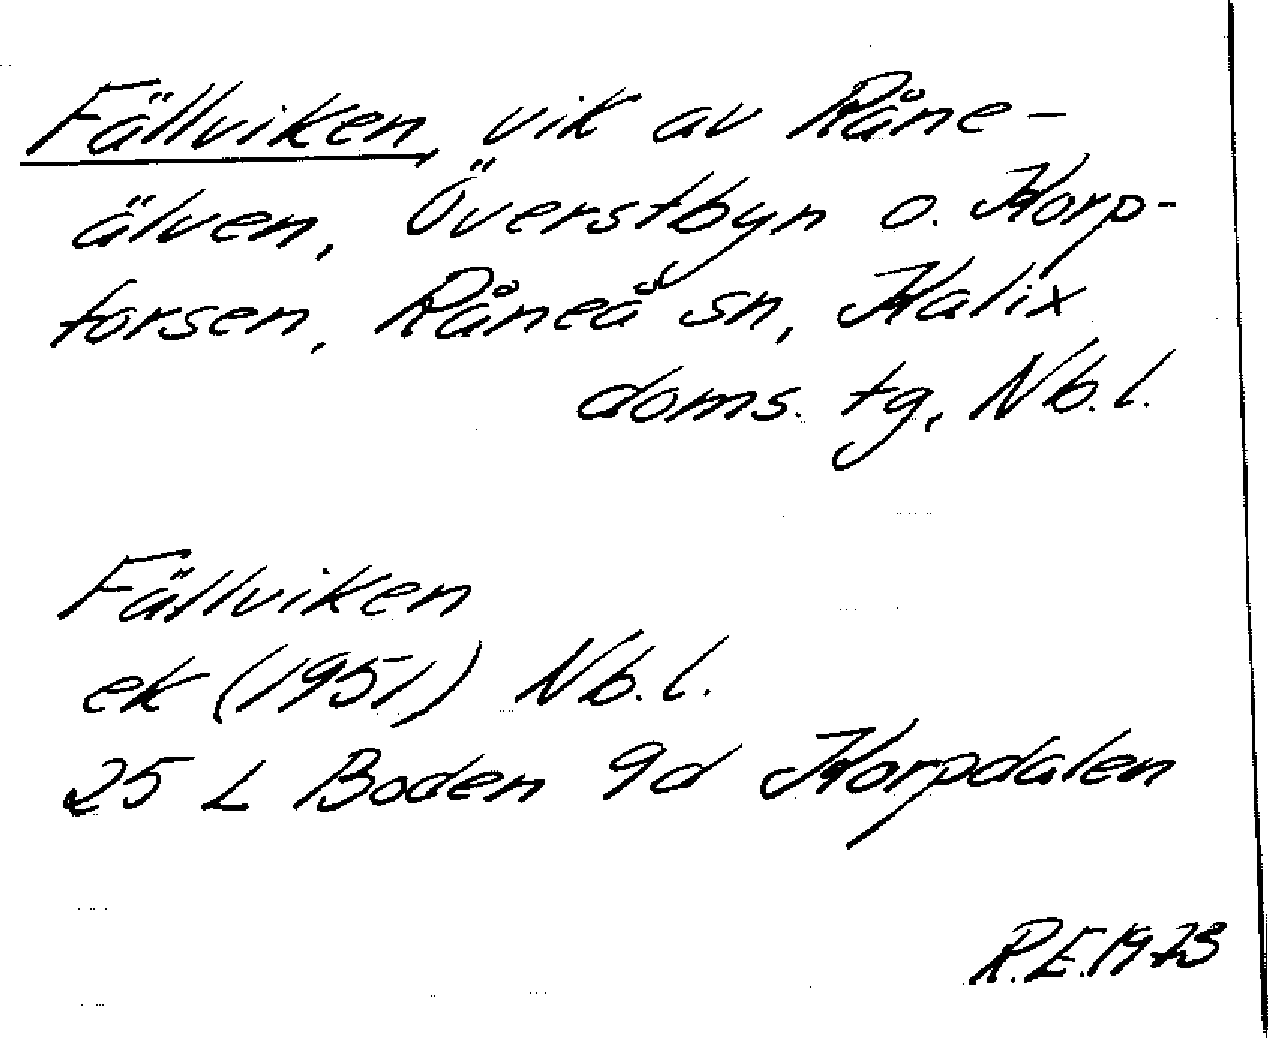 Fällviken, vik av Råne-
älven, Överstbyn o. Korp-
forsen, Råneå sn, Kalix
doms. tg, Nb.l.
Fällviken
ek (1951) Nb.l.
25 L Boden 9d Korpdalen
R.E.1973